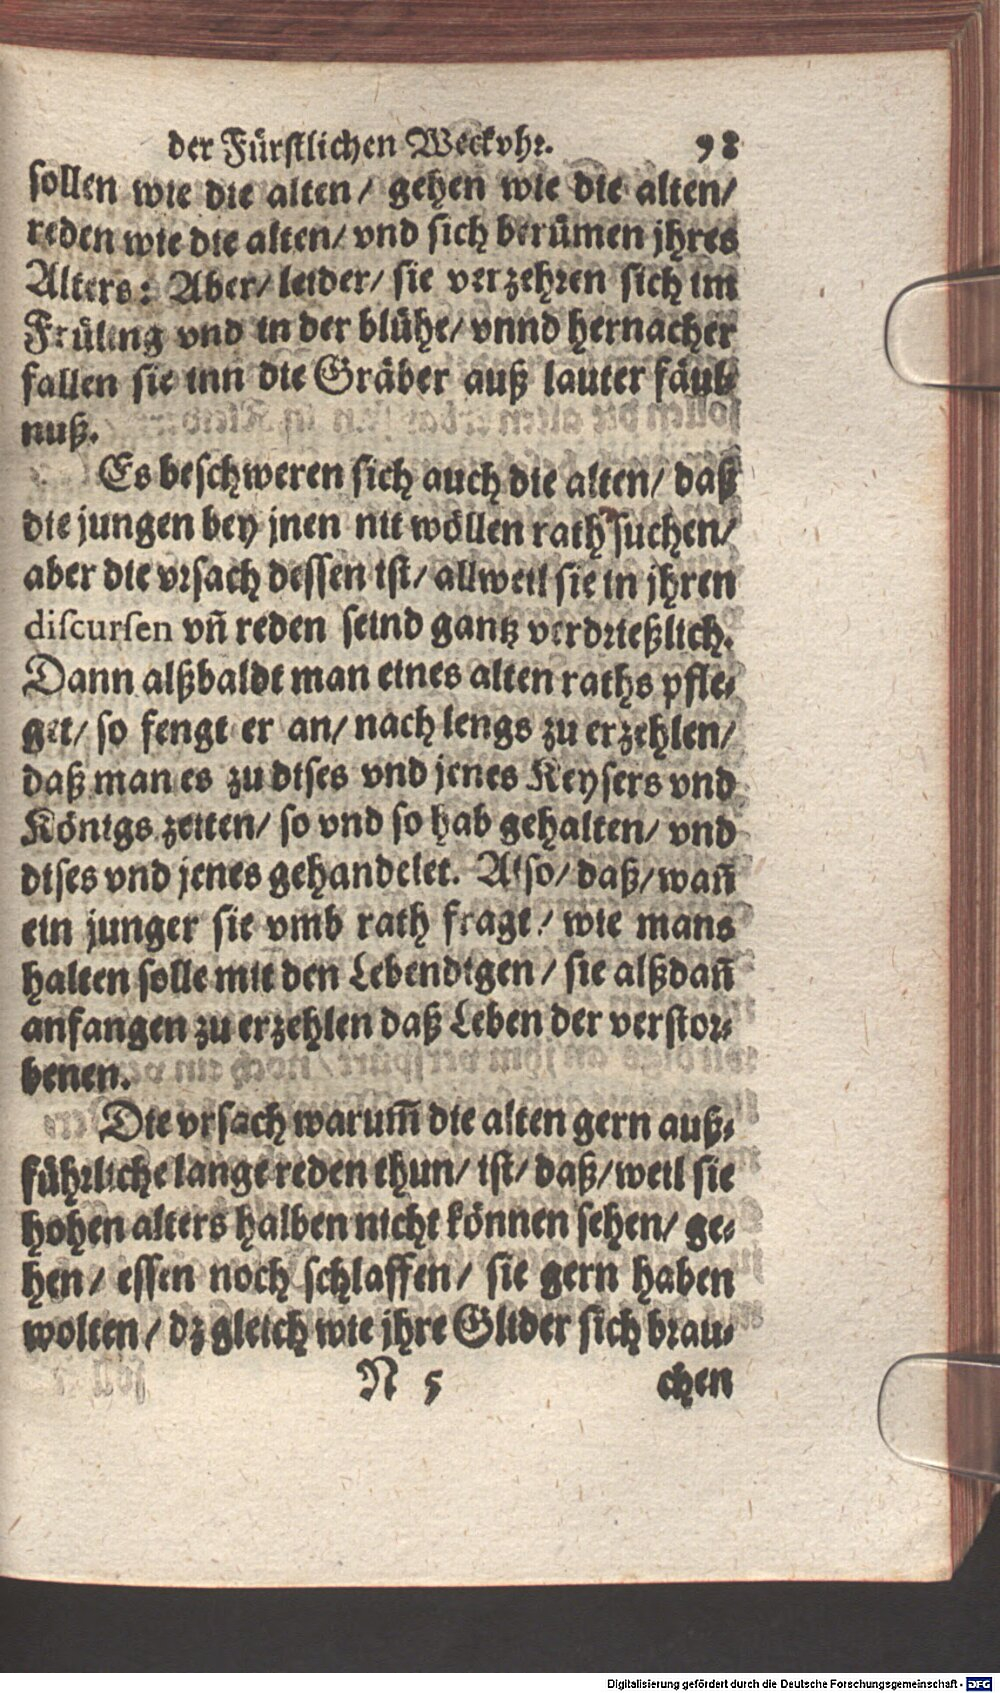 der Fürstlichen Weckvhr. 98
sollen wie die alten / gehen wie die alten /
reden wie die alten / vnd sich berümen jhres
Alters: Aber / leider / sie verzehren sich im
Früling vnd in der blühe / vnnd hernacher
fallen sie inn die Gräber auß lauter fäul-
nuß.
Es beschweren sich auch die alten / daß
die jungen bey jnen nit wöllen rath suchen /
aber die vrsach dessen ist / allweil sie in jhren
discursen vñ reden seind gantz verdrießlich.
Dann alßbaldt man eines alten raths pfle-
get / so fengt er an / nach lengs zu erzehlen /
daß man es zu dises vnd jenes Keysers vnd
Königs zeiten / so vnd so hab gehalten / vnd
dises vnd jenes gehandelet. Also / daß / wañ
ein junger sie vmb rath fragt / wie mans
halten solle mit den Lebendigen / sie alßdañ
anfangen zu erzehlen daß Leben der verstor-
benen.
Die vrsach warum̃ die alten gern auß-
führliche lange reden thun / ist / daß / weil sie
hohen alters halben nicht können sehen / ge-
hen / essen noch schlaffen / sie gern haben
wolten / dz gleich wie jhre Glider sich brau-
N 5 chen
Digitalisierung gefördert durch die Deutsche Forschungsgemeinschaft - DFG